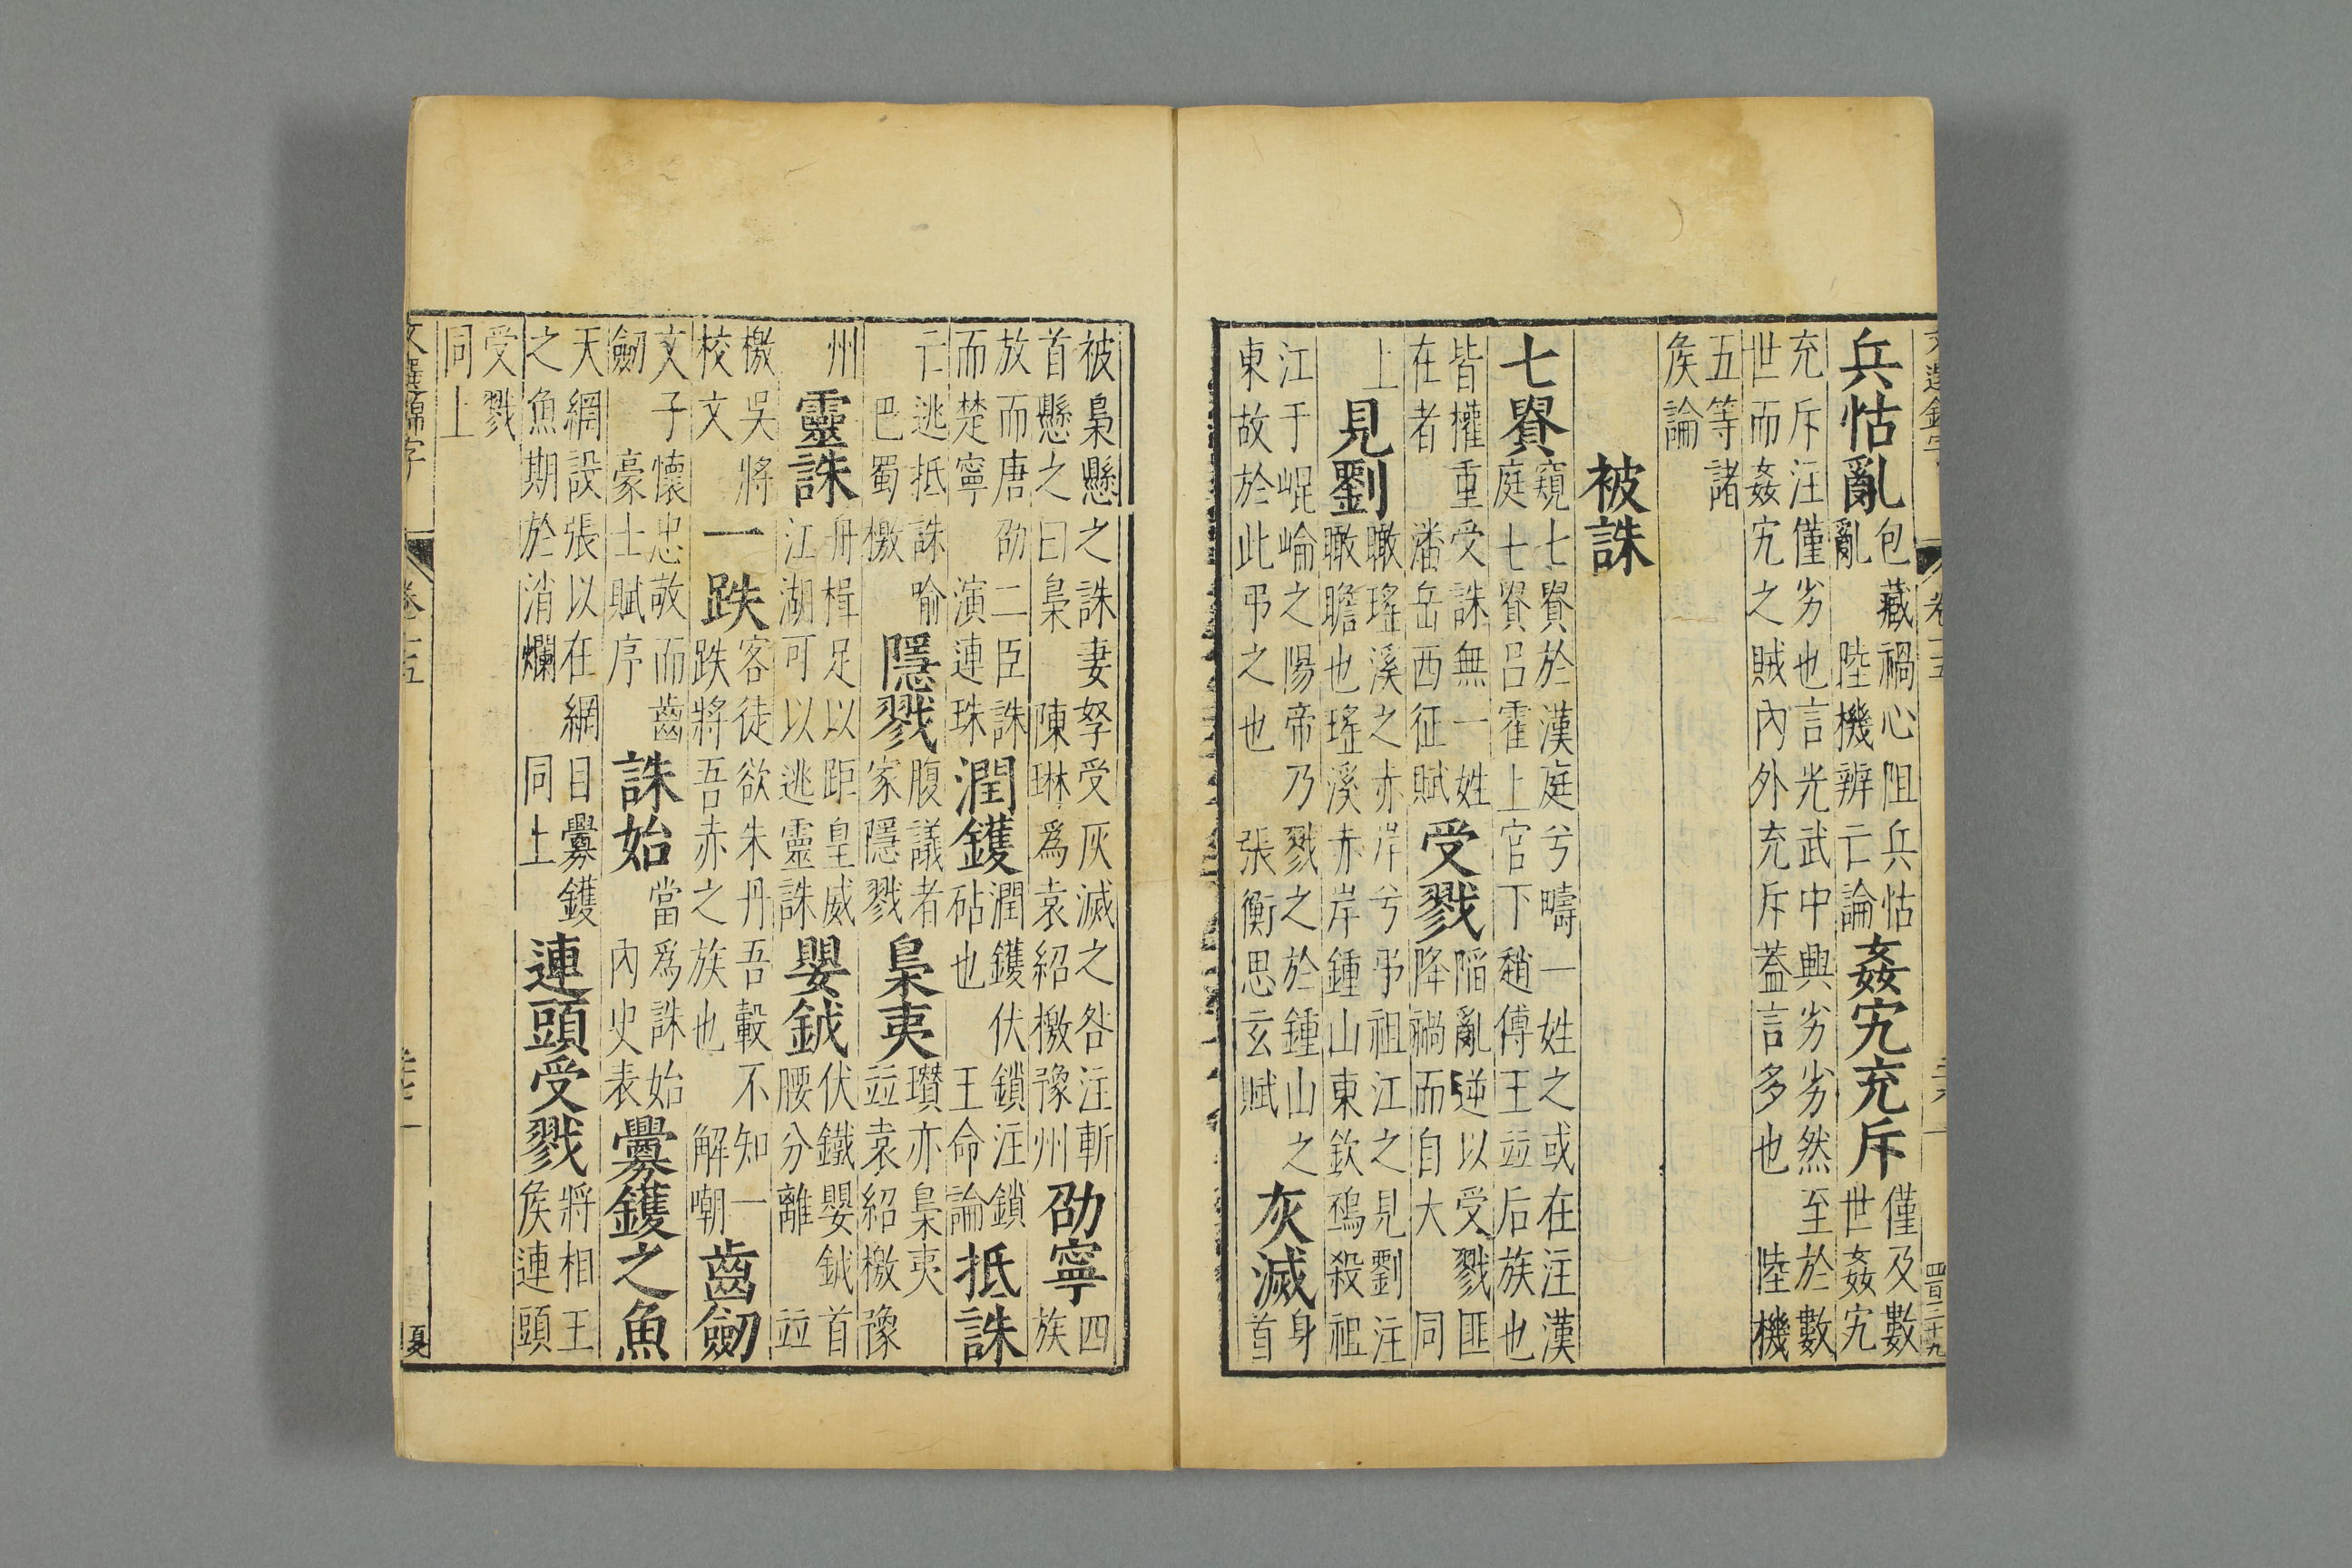 卷十五
四百二十九
兵怙亂包藏禍心阻兵怙亂 陸機辨亡論姦宄充斥僅及數世姦宄
充斥注僅劣也言光武中興劣劣然至於數世而姦宄之賊內外充斥蓋言多也 陸機
五等諸侯論
被誅
七貴窺七貴於漢庭兮疇一姓之或在注漢庭七貴呂霍上官下趙傅王並后族也
皆權重受誅無一姓在者 潘岳西征賦受戮陷亂逆以受戮匪降禍而自大 同
上 見劉瞰瑤溪之赤岸兮弔祖江之見劉注瞰瞻也瑤溪赤岸鍾山東欽䲹殺祖
江于崐崘之陽帝乃戮之於鍾山之東故於此弔之也 張衡思玄賦灰滅身首
被梟懸之誅妻孥受灰滅之咎注斬首懸之曰梟 陳琳爲袁紹檄豫州劭寧四族
放而唐劭二臣誅而楚寧 演連珠潤鑊潤鑊伏鎖注鎖砧也 王命論抵誅
亡逃抵誅 喻巴蜀檄隱戮腹議者家隱戮梟夷瓚亦梟夷 並袁紹檄豫
州 靈誅舟楫足以距皇威江湖可以逃靈誅嬰鉞伏鐵嬰鉞首腰分離 並
檄吳將校文一跌客徒欲朱丹吾轂不知一跌將吾赤之族也 解嘲齒劒
文子懷忠敬而齒劒 豪士賦序誅始當爲誅始 內史表爨鑊之魚
天網設張以在網目爨鑊之魚期於消爛 同上連頭受戮將相王侯連頭
受戮同上
文選錦字
卷十五
夏